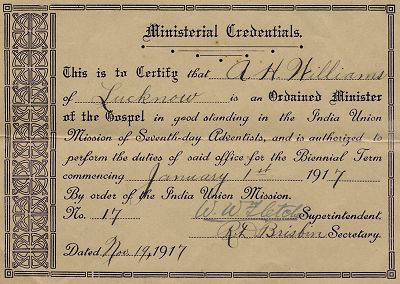 Ministerial Credentials.
This is to Certify that A H. Williams
of Lucknow is an Ordained Minister
of the Gospel in good standing in the India Union
Mission of Seventh-day Adventists, and is authorized to
perform the duties of said office for the Biennial Term
commencing January 1st 1917
By order of the India Union Mission.
No. 17 W W Fletcher Superintendent.
R.D. Brisbin Secretary.
Dated Nov 19, 1917